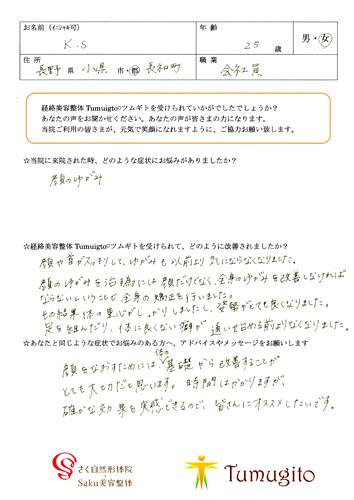 お名前（イニシャル可）
K.S
年齢
25 歳
男・女
住所
長野 県 小県 市・郡 長和町
職業
会社員
経絡美容整体 Tumugito□ツムギトを受けられていかがでしたでしょうか？
あなたの声をお聞かせください。あなたの声が皆さまの力になります。
当院ご利用の皆さまが、元気で笑顔になれますように、ご協力お願い致します。
☆当院に来院された時、どのような症状にお悩みがありましたか？
顔のゆがみ
☆経絡美容整体 Tumuigto□ツムギトを受けられて、どのように改善されましたか？
顔や首がスッキリして、ゆがみも以前より気にならなくなりました。
顔のゆがみを治す為には顔だけでなく、全身のゆがみを改善しなければ
ならないということで全身の矯正を行いました。
その結果 体の重心がしっかりしましたし、姿勢がとても良くなりました。
足を組んだり、体に良くない癖が 通い始める前よりなくなりました。
☆あなたと同じような症状でお悩みのある方へ、アドバイスやメッセージをお願いします
顔をなおすためには 体の基礎から改善することが
とても大切だと思います。時間はかかりますが、
確かな効果を実感できるので、皆さんにオススメしたいです。
さく自然形体院
Saku美容整体
Tumugito